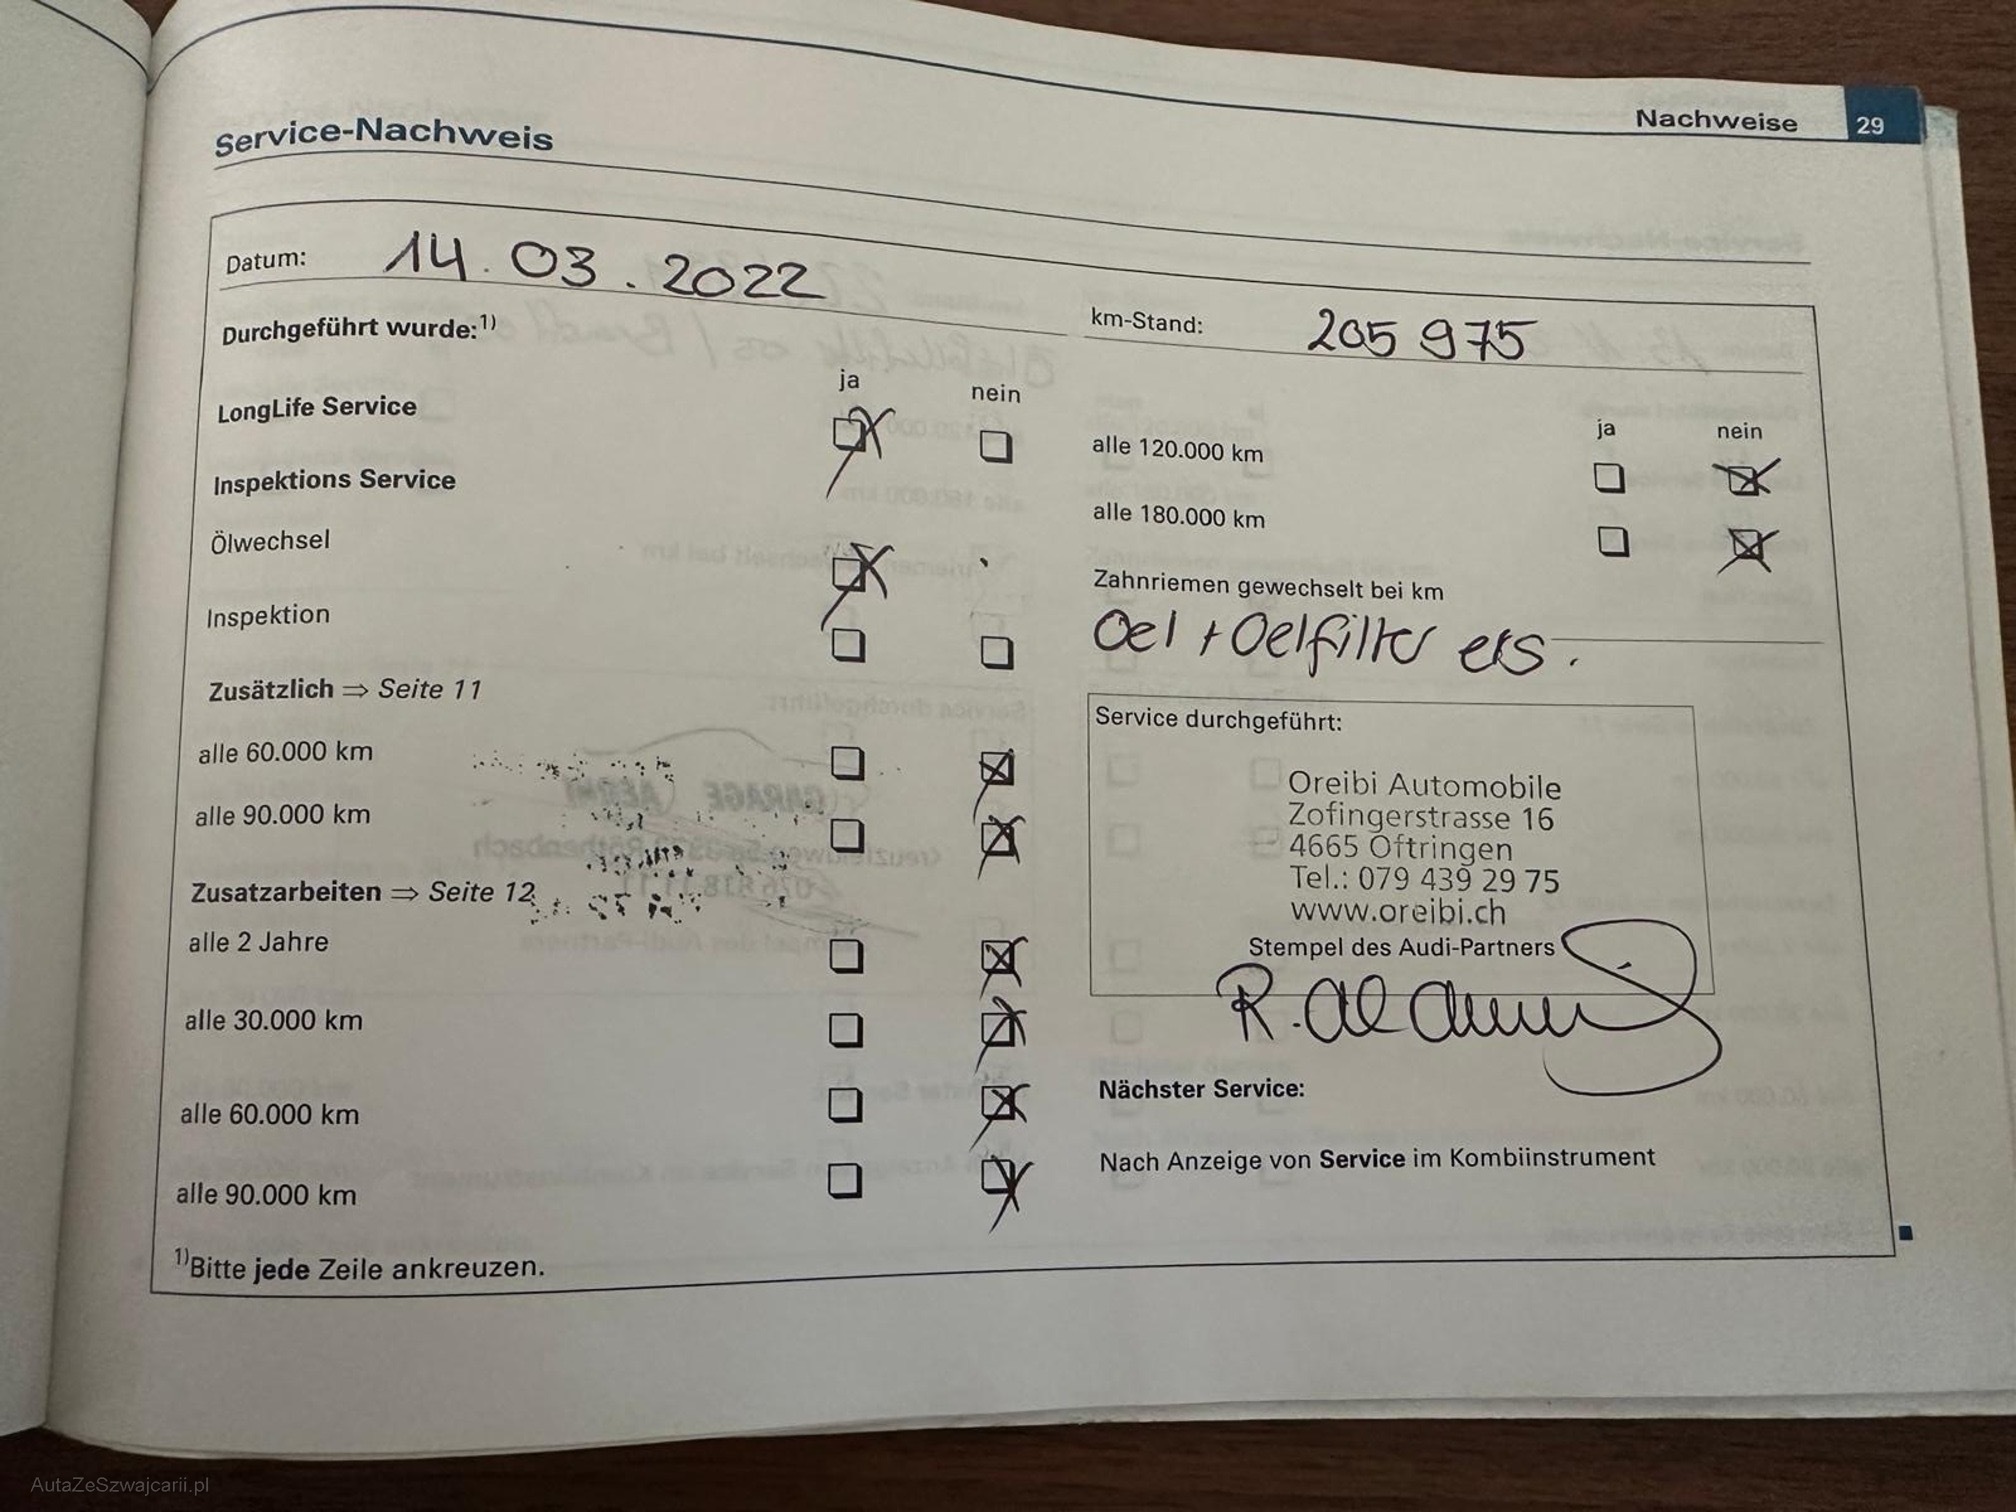 Nachweise 29
Service-Nachweis
Datum: 14.03.2022
km-Stand: 205 975
Durchgeführt wurde:1)
ja nein
LongLife Service
Inspektions Service
Ölwechsel
Inspektion
Zusätzlich ⇒ Seite 11
alle 60.000 km
alle 90.000 km
Zusatzarbeiten ⇒ Seite 12
alle 2 Jahre
alle 30.000 km
alle 60.000 km
alle 90.000 km
1)Bitte jede Zeile ankreuzen.
ja nein
alle 120.000 km
alle 180.000 km
Zahnriemen gewechselt bei km
Oel + Oelfilter ers.
Service durchgeführt:
Oreibi Automobile
Zofingerstrasse 16
4665 Oftringen
Tel.: 079 439 29 75
www.oreibi.ch
Stempel des Audi-Partners
Nächster Service:
Nach Anzeige von Service im Kombiinstrument
AutaZeSzwajcarii.pl